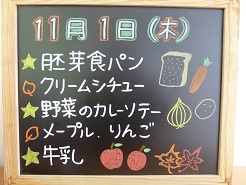 11月1日(木)
胚芽食パン
クリームシチュー
野菜のカレーソテー
メープルりんご
牛乳